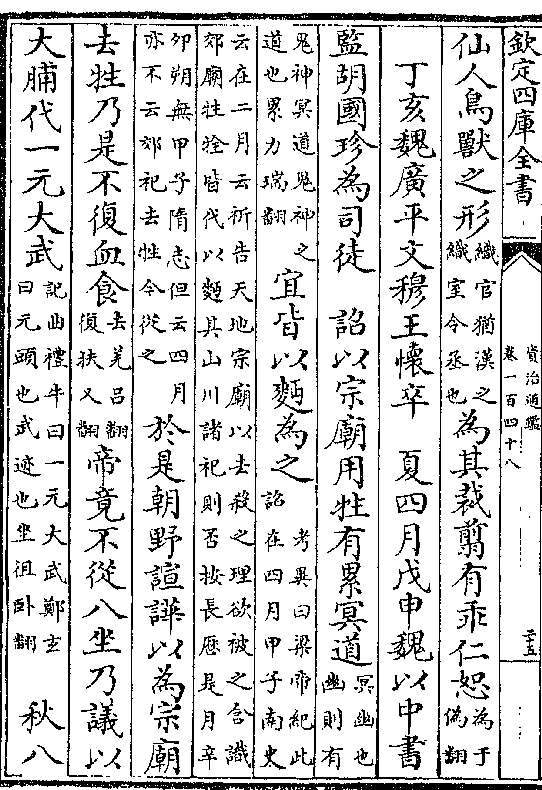 欽定四庫全書
資治通鑑
卷一百四十八
二十五
仙人鳥獸之形織官猶漢之織室令丞也為其裁翦有乖仁恕為于偽翻
丁亥魏廣平文穆王懷卒 夏四月戊申魏以中書
監胡國珍為司徒 詔以宗廟用牲有累冥道冥幽也幽則有
鬼神冥道鬼神之道也累力瑞翻宜皆以麪為之考異曰梁帝紀此詔在四月甲子南史
云在二月云祈告天地宗廟以去殺之理欲被之含識郊廟牲牷皆代以麪其山川諸祀則否按長歷是月辛
卯朔無甲子隋志但云四月亦不云郊祀去牲今從之於是朝野諠譁以為宗廟
去牲乃是不復血食去羌呂翻復扶又翻帝竟不從八坐乃議以
大脯代一元大武記曲禮牛曰一元大武鄭玄曰元頭也武迹也坐徂卧翻 秋八